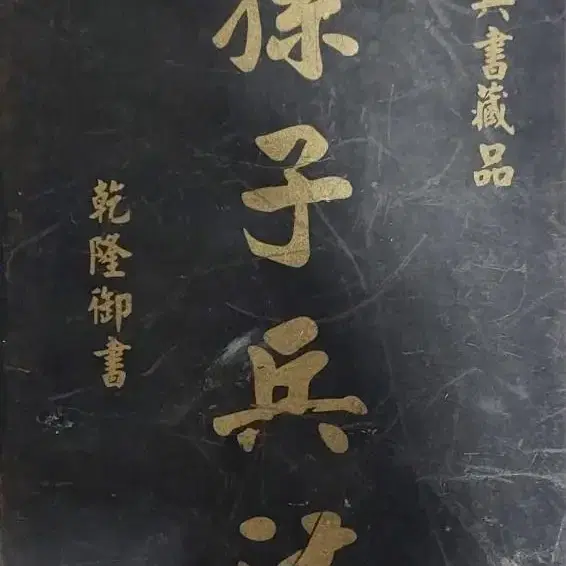 兵書藏品
孫子兵法
乾隆御書